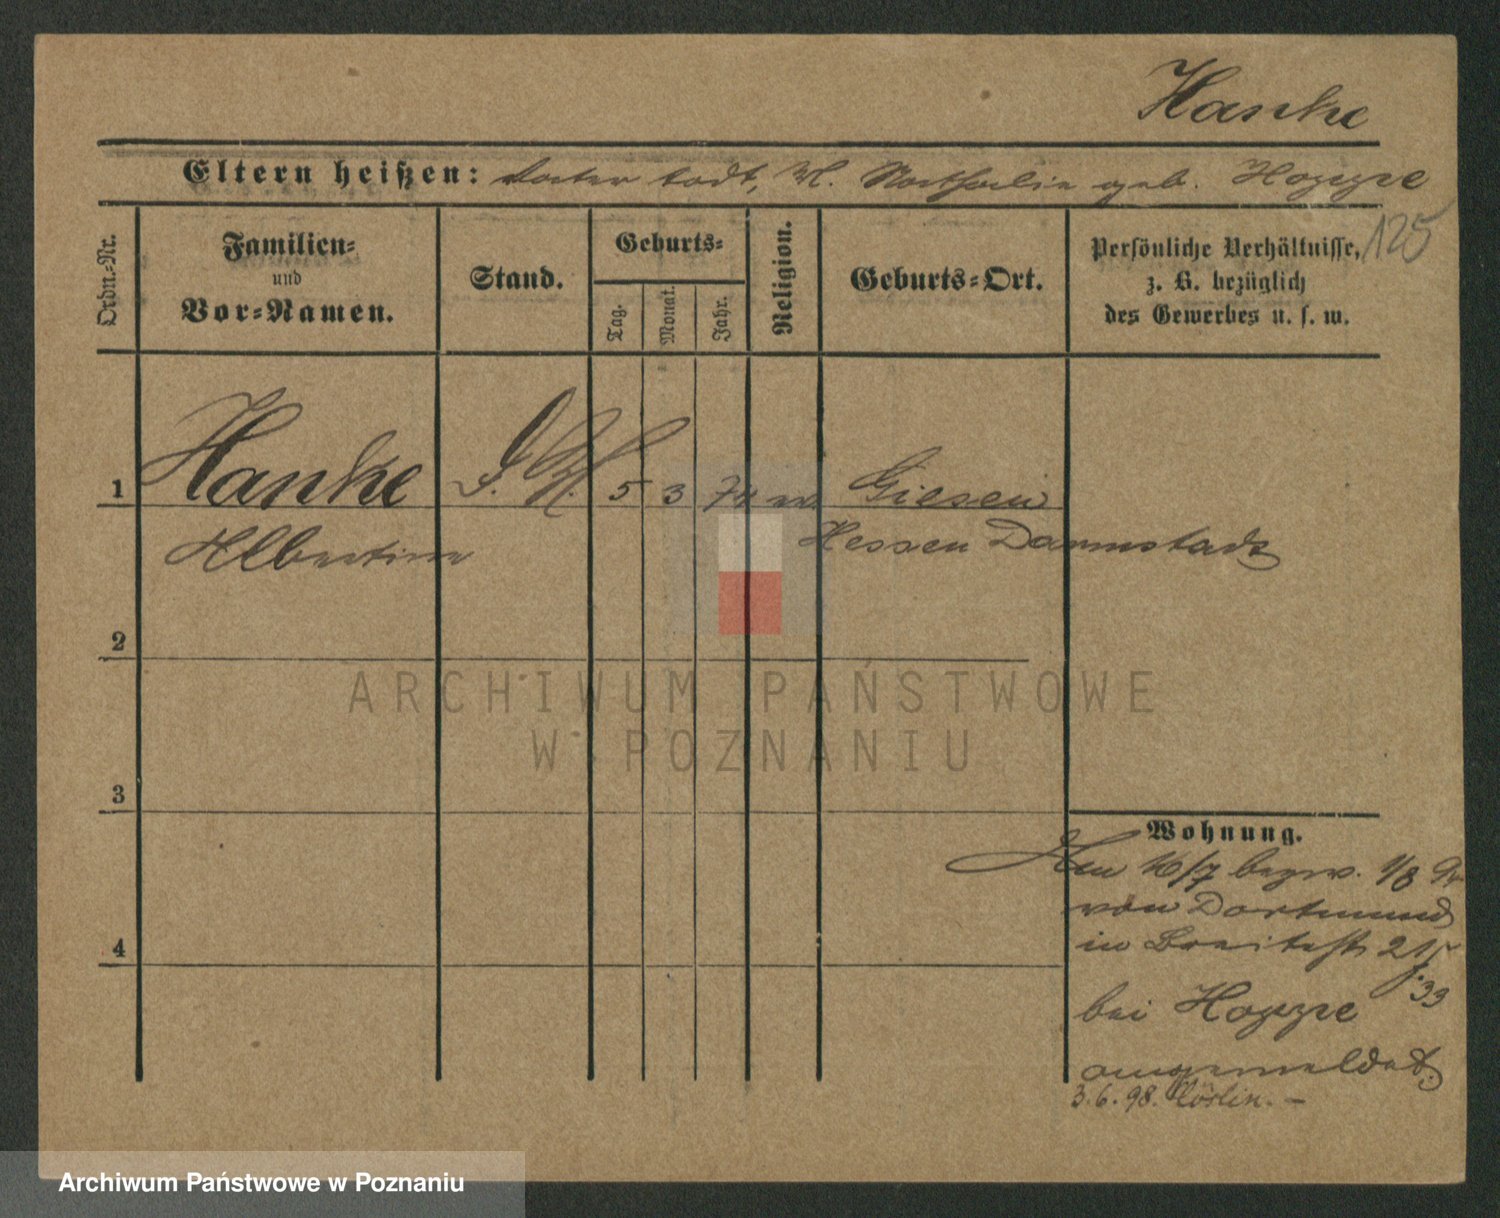 Hanke
Eltern heißen: Vater todt, M. Nathalie geb. Hoppe
125
Ordn.-Nr.
Familien-
und
Vor-Namen.
Stand.
Geburts-
Tag.
Monat.
Jahr.
Religion.
Geburts-Ort.
Persönliche Verhältnisse,
z. B. bezüglich
des Gewerbes u. s. w.
1 Hanke 5 3 74 Giesen
Albertine Hessen Darmstadt
2
3
4
ARCHIWUM PAŃSTWOWE
W POZNANIU
Wohnung.
bezw. 1/8
von Dortmund
in Breitestr 21
bei Hoppe
angemeldet.
3.6.98. Cörlin. –
Archiwum Państwowe w Poznaniu